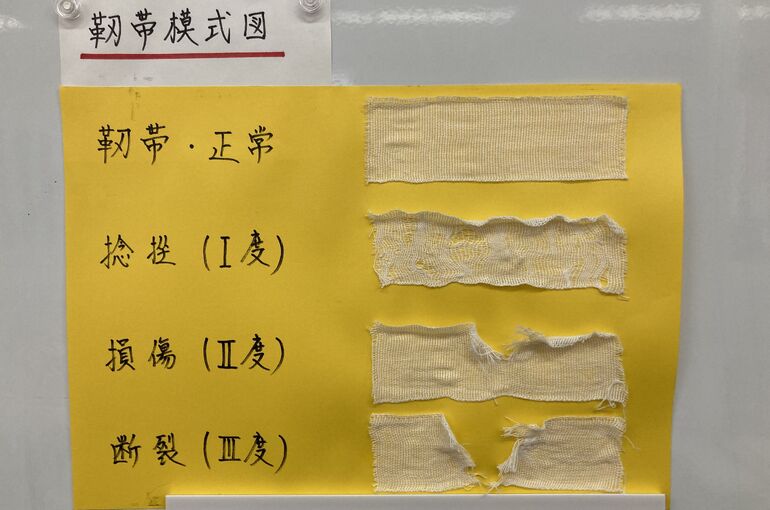 靭帯模式図
靭帯・正常
捻挫(I度)
損傷(II度)
断裂(III度)